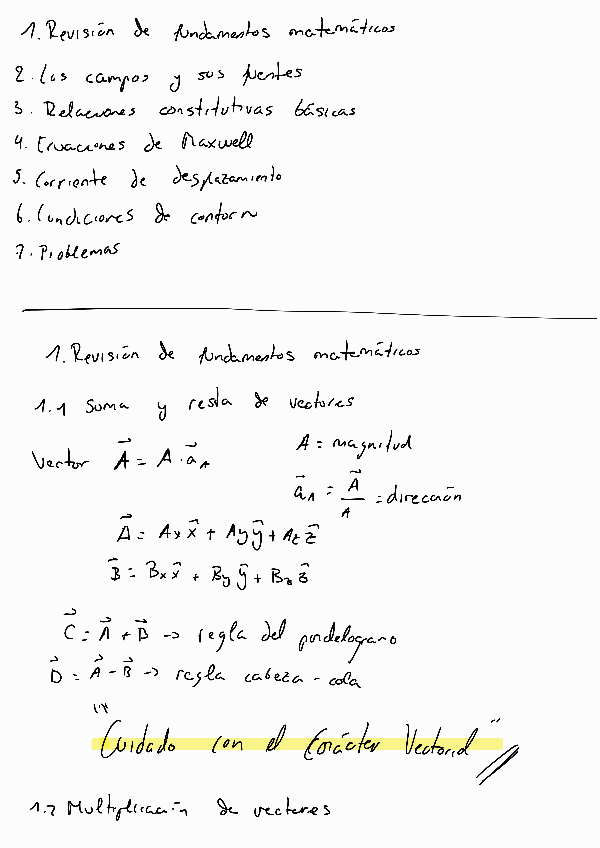 1. Revisión de fundamentos matemáticos
2. Los campos y sus fuentes
3. Relaciones constitutivas básicas
4. Ecuaciones de Maxwell
5. Corriente de desplazamiento
6. Condiciones de contorn
7. Problemas
1. Revisión de fundamentos matemáticos
1.1 Suma y resta de vectores
Vector A⃗ = A · a⃗_A    A = magnitud
a⃗_A = A⃗/A = dirección
A⃗ = Ax x⃗ + Ay y⃗ + Az z⃗
B⃗ = Bx x⃗ + By y⃗ + Bz z⃗
C⃗ = A⃗ + B⃗ -> regla del
D⃗ = A⃗ - B⃗ -> regla cabeza - cola
"Cuidado con el Carácter Vectorial"
1.2 Multiplicación de vectores